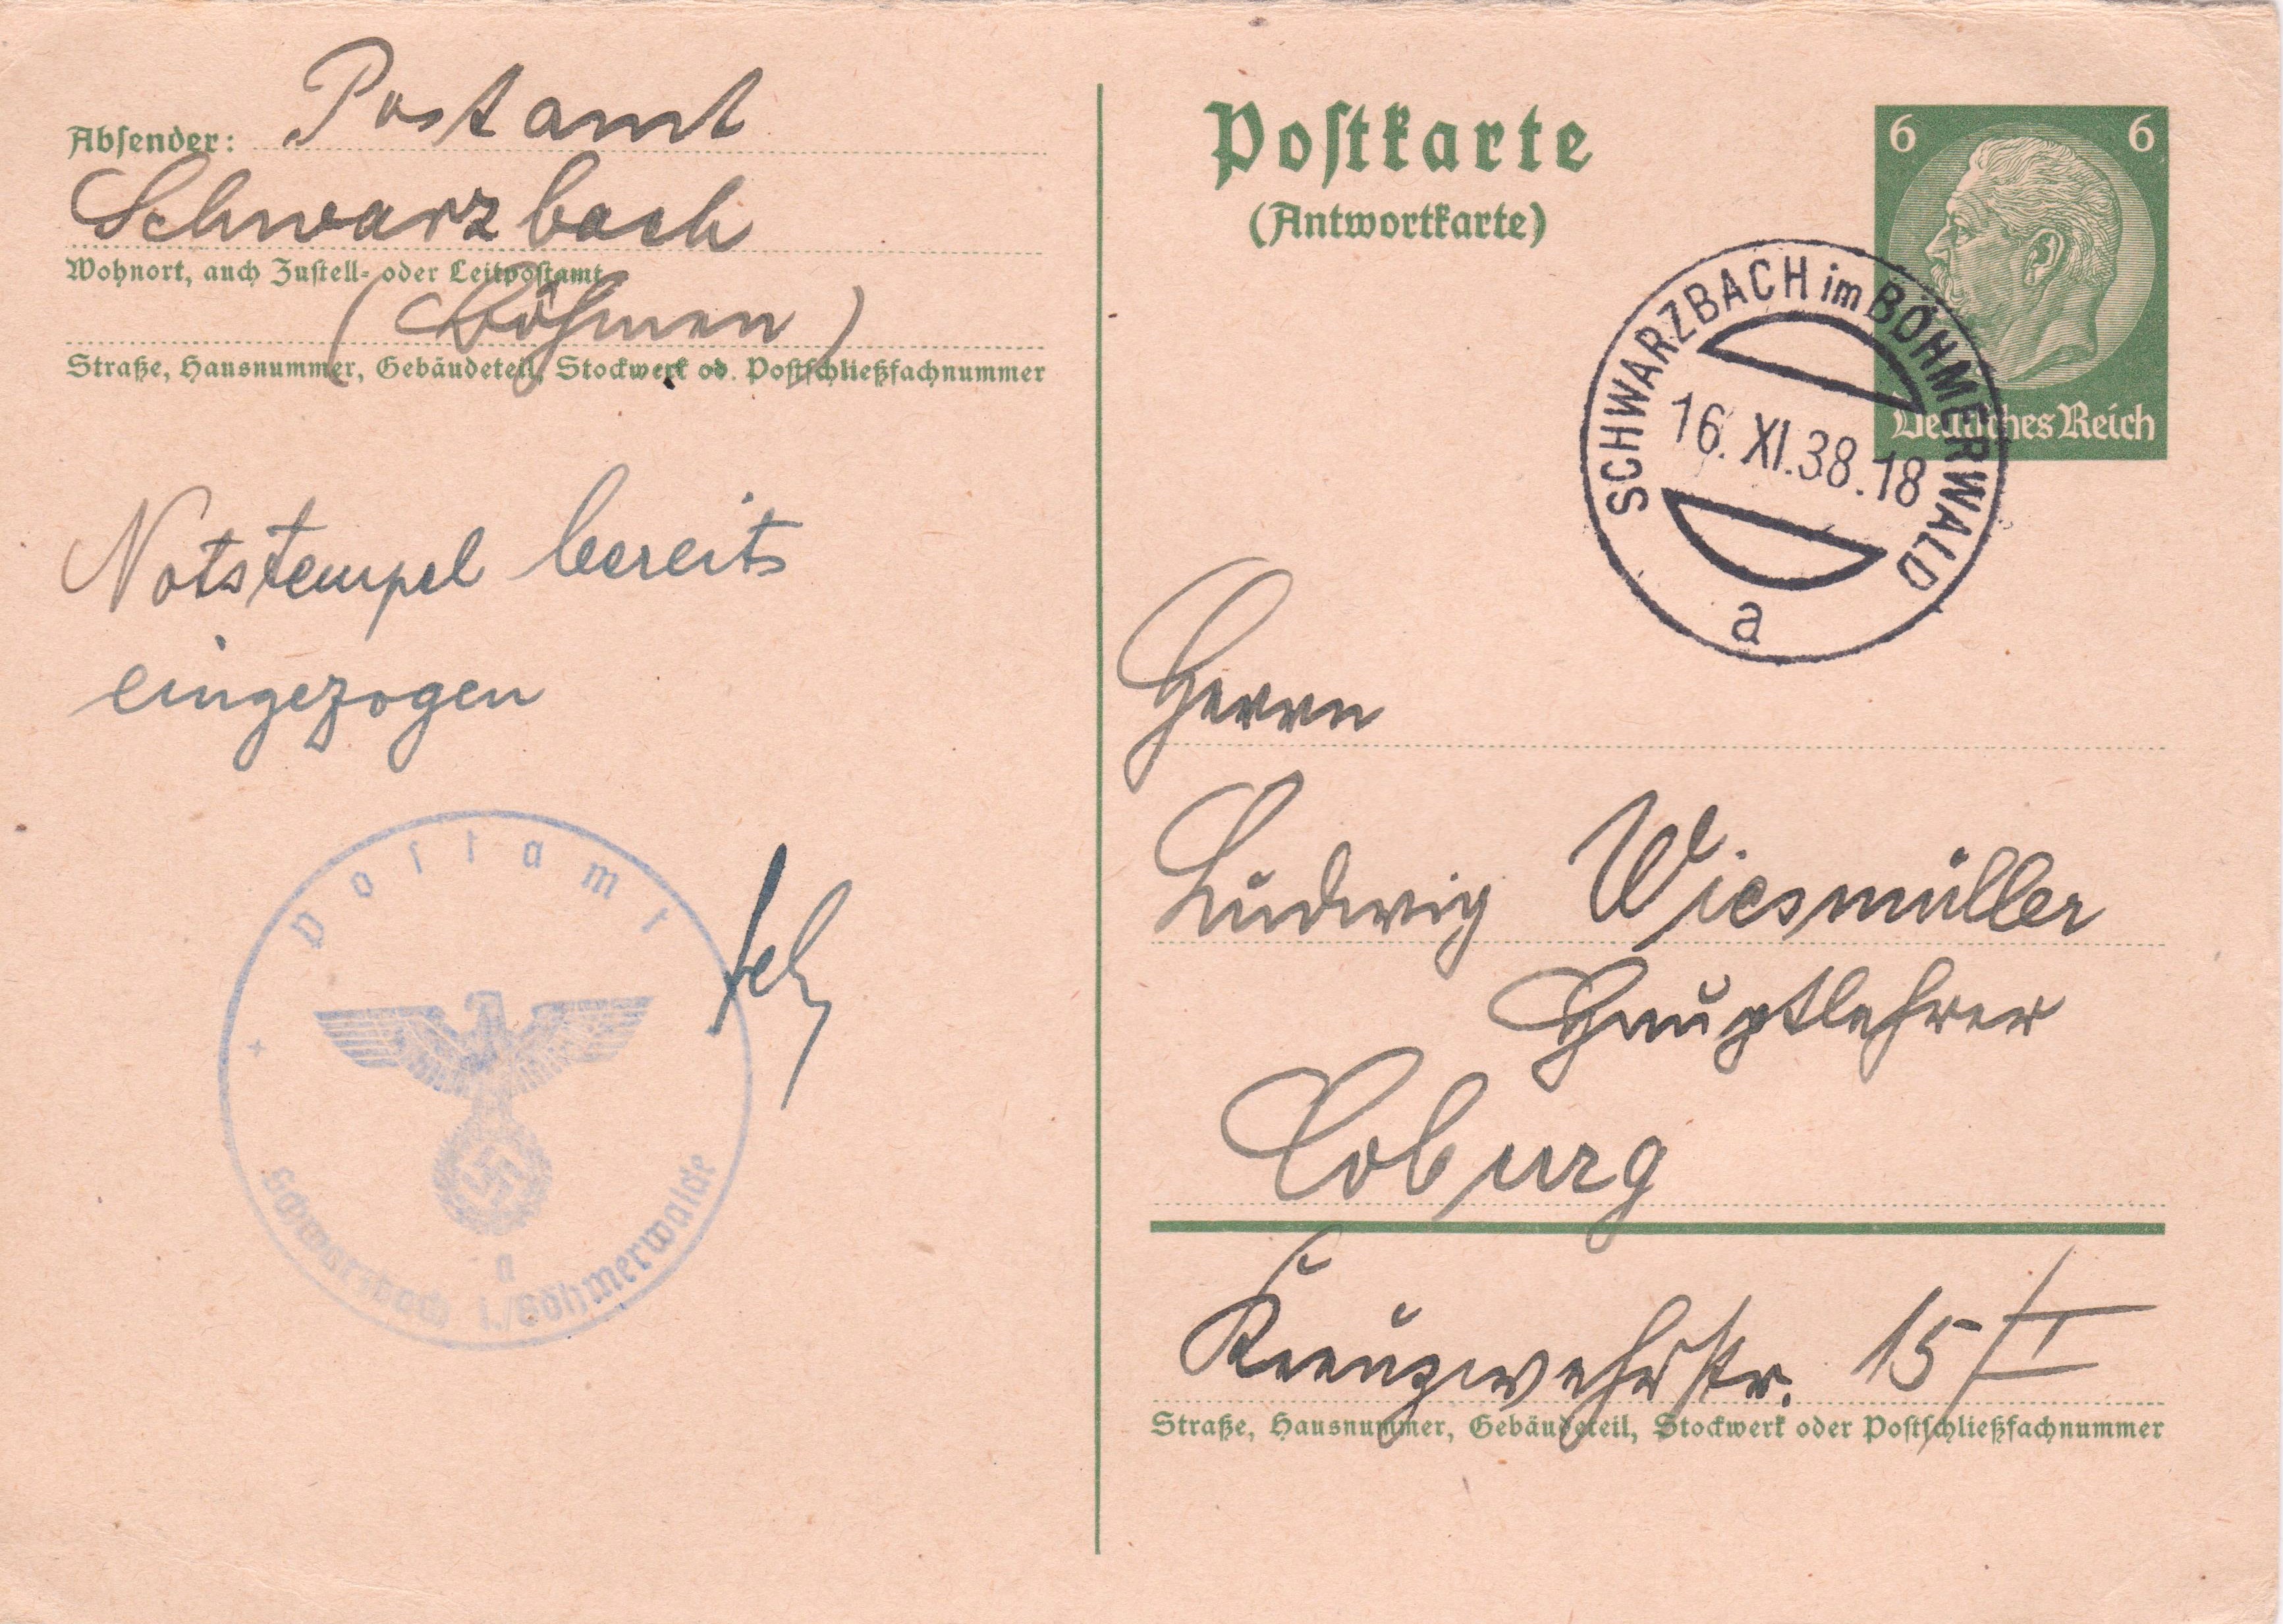 Absender: Postamt
Schwarzbach
Wohnort, auch Zustell- oder Leitpostamt
(Böhmen)
Straße, Hausnummer, Gebäudeteil, Stockwerk od. Postschließfachnummer
Notstempel bereits
eingezogen
Postamt
Schwarzbach i./Böhmerwalde
a
Postkarte
(Antwortkarte)
6 6
Deutsches Reich
SCHWARZBACH im BÖHMERWALD
16. XI. 38. 18
a
Herrn
Ludwig Wiesmüller
Hauptlehrer
Coburg
Kreuzwehrstr. 15/I
Straße, Hausnummer, Gebäudeteil, Stockwerk oder Postschließfachnummer